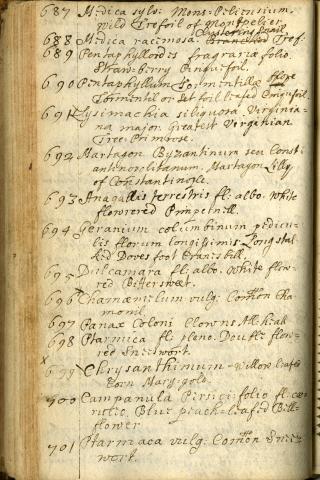 687 Medica sylv: Mons: Peliensium.
wild Trefoil of Montpelier
Clustering Snail
688 Medica racemosa. Tref.
689 Pentaphylloides fragraria folio.
Straw-berry Cinquefoil.
690 Pentaphyllum Tormentillæ
Tormentil or Set foil leafed Cinquefoil
691 Lysimachia siliquosa Virginia-
na major. Greatest Virginian
Tree Primrose.
692 Martagon Byzantinum seu Const-
antinopolitanum. Martagon Lilly
of Constantinople.
693 Anagallis terrestris fl: albo. White
flowered Pimpernell.
694 Geranium columbinum pedicu-
lis florum longissimis. Long stal-
ked Doves foot Cranesbill.
695 Dulcamara fl: albo. White flow-
red Bittersweet.
696 Chamæmelum vulg: Com̃on Cha-
momil.
697 Panax Coloni Clowns All-heal
698 Ptarmica fl: pleno. Double flow-
red Sneeswort.
x
699 Chrysanthimum - Willow leafed
Corn Mary-gold.
700 Campanula Persici: folio fl: cæ-
rulio. Blue peach-leafed Bell-
flower
701 Ptarmaca vulg: Com̃on Snees-
wort.